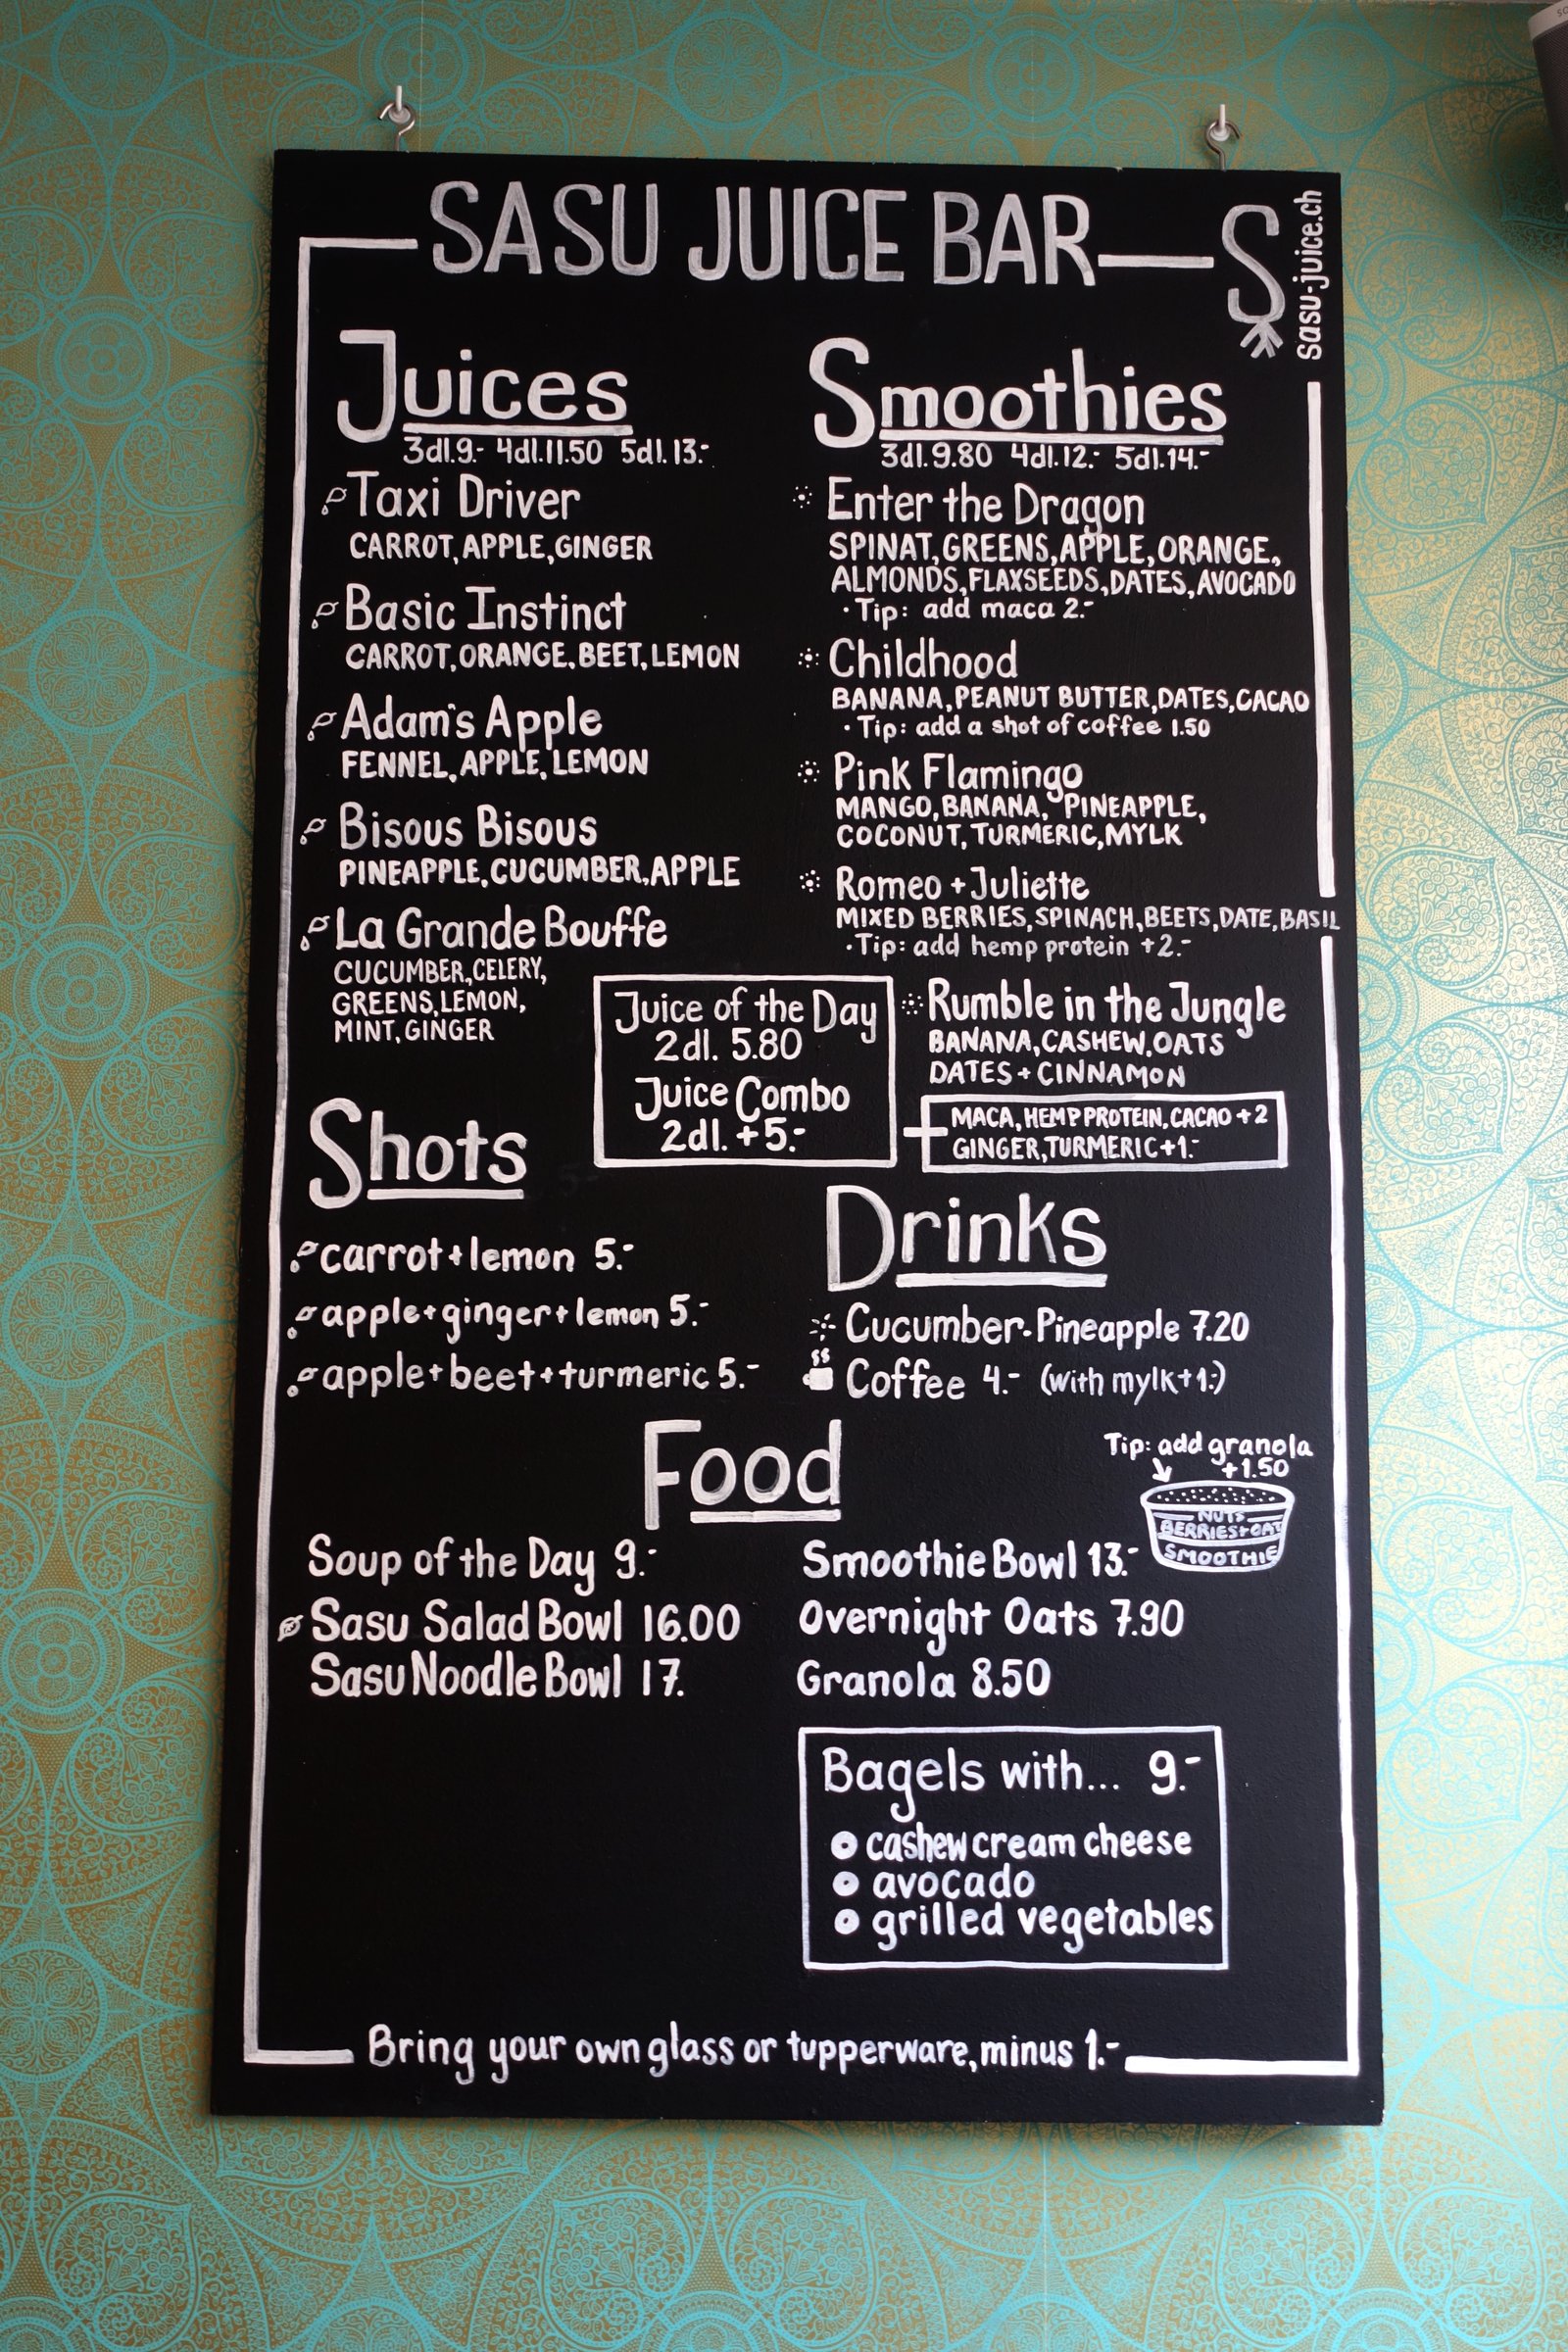 SASU JUICE BAR
S
sasu-juice.ch
Juices
3dl.9.- 4dl.11.50 5dl.13.-
Taxi Driver
CARROT, APPLE, GINGER
Basic Instinct
CARROT, ORANGE, BEET, LEMON
Adam's Apple
FENNEL, APPLE, LEMON
Bisous Bisous
PINEAPPLE, CUCUMBER, APPLE
La Grande Bouffe
CUCUMBER, CELERY,
GREENS, LEMON,
MINT, GINGER
Juice of the Day
2dl. 5.80
Juice Combo
2dl. +5.-
Smoothies
3dl.9.80 4dl.12.- 5dl.14.-
Enter the Dragon
SPINAT, GREENS, APPLE, ORANGE,
ALMONDS, FLAXSEEDS, DATES, AVOCADO
· Tip: add maca 2.-
Childhood
BANANA, PEANUT BUTTER, DATES, CACAO
· Tip: add a shot of coffee 1.50
Pink Flamingo
MANGO, BANANA, PINEAPPLE,
COCONUT, TURMERIC, MYLK
Romeo + Juliette
MIXED BERRIES, SPINACH, BEETS, DATE, BASIL
· Tip: add hemp protein +2.-
Rumble in the Jungle
BANANA, CASHEW, OATS
DATES + CINNAMON
+ MACA, HEMP PROTEIN, CACAO +2
GINGER, TURMERIC +1.-
Shots
carrot + lemon 5.-
apple + ginger + lemon 5.-
apple + beet + turmeric 5.-
Drinks
Cucumber-Pineapple 7.20
Coffee 4.- (with mylk +1.-)
Food
Soup of the Day 9.-
Sasu Salad Bowl 16.00
Sasu Noodle Bowl 17.
Tip: add granola
+1.50
NUTS
BERRIES + OAT
SMOOTHIE
Smoothie Bowl 13.-
Overnight Oats 7.90
Granola 8.50
Bagels with... 9.-
cashew cream cheese
avocado
grilled vegetables
Bring your own glass or tupperware, minus 1.-